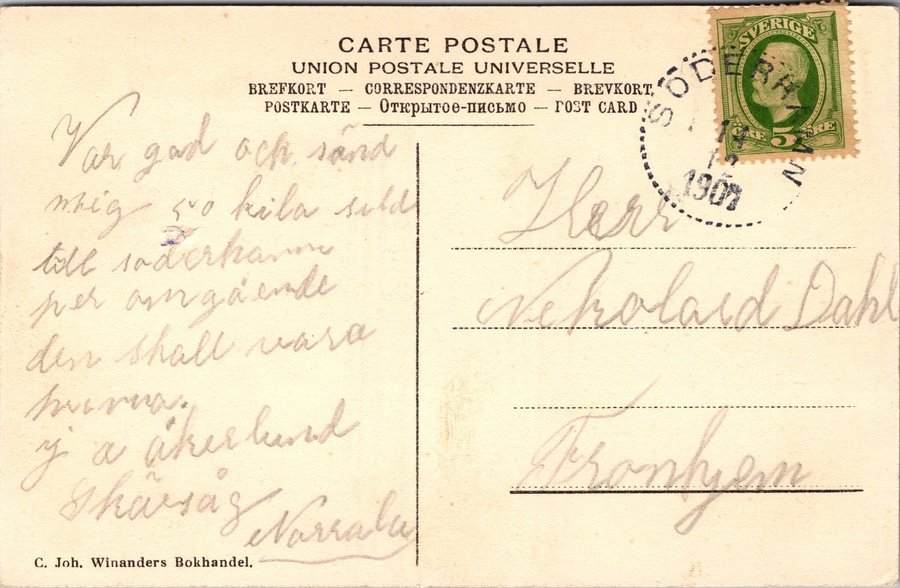 CARTE POSTALE
UNION POSTALE UNIVERSELLE
BREFKORT — CORRESPONDENZKARTE — BREVKORT
POSTKARTE — Открытое-письмо — POST CARD
SVERIGE
ÖRE 5 ÖRE
SÖDERHAMN
14
12
1901
Var god och sänd
mig 50 kilo
till söderhamn
per omgående
den skall vara
prima.
a åkerlund
Norrala
Herr
Nekolaid Dahl
Fronhjem
C. Joh. Winanders Bokhandel.